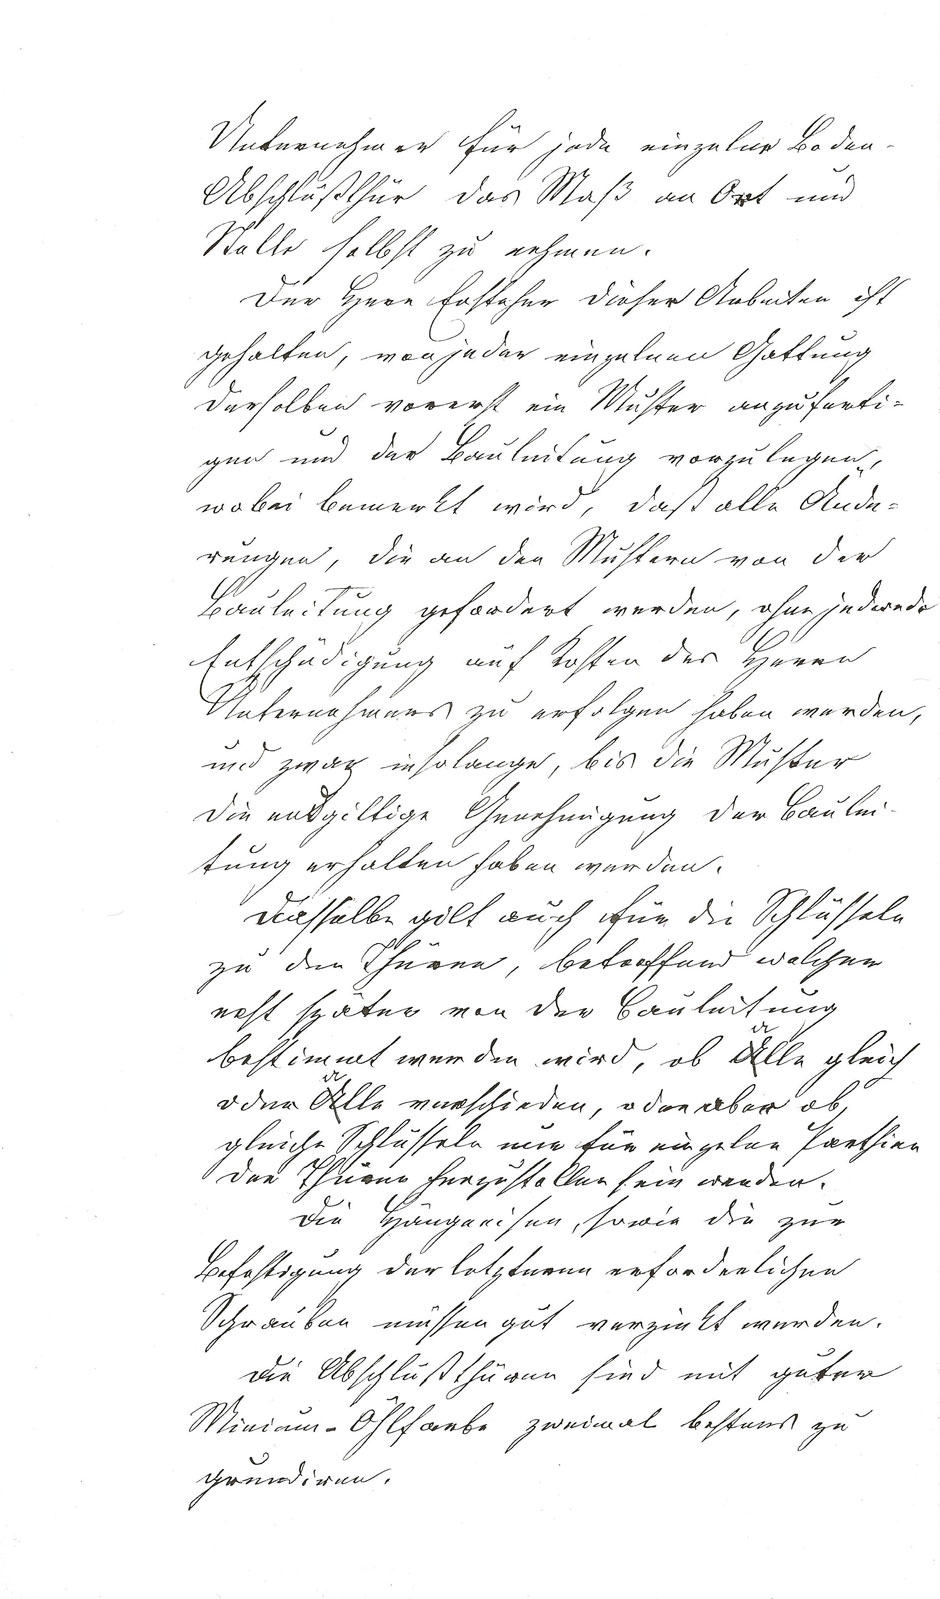 Unternehmer für jede einzelne Boden-
Abschlußthür das Maß an Ort und
Stelle selbst zu nehmen.
Der Herr Ersteher dieser Arbeiten ist
gehalten, von jeder einzelnen Gattung
derselben vorerst ein Muster anzuferti-
gen und der Bauleitung vorzulegen,
wobei bemerkt wird, daß alle Ände-
rungen, die an den Mustern von der
Bauleitung gefordert werden, ohne jedwede
Entschädigung auf Kosten des Herrn
Unternehmers zu erfolgen haben werden,
und zwar insolange, bis die Muster
die endgiltige Genehmigung der Baulei-
tung erhalten haben werden.
Dasselbe gilt auch für die Schlüsseln
zu den Thüren, betreffend welcher
erst später von der Bauleitung
bestimmt werden wird, ob alle gleich
oder alle verschieden, oder aber ob,
gleiche Schlüsseln nur für einzelne Parthien
der Thüren herzustellen sein werden.
Die Hängeeisen, sowie die zur
Befestigung der letzteren erforderlichen
Schrauben müssen gut verzinkt werden.
Die Abschlußthüren sind mit guter
Minium-Öhlfarbe zweimal bestens zu
grundiren.